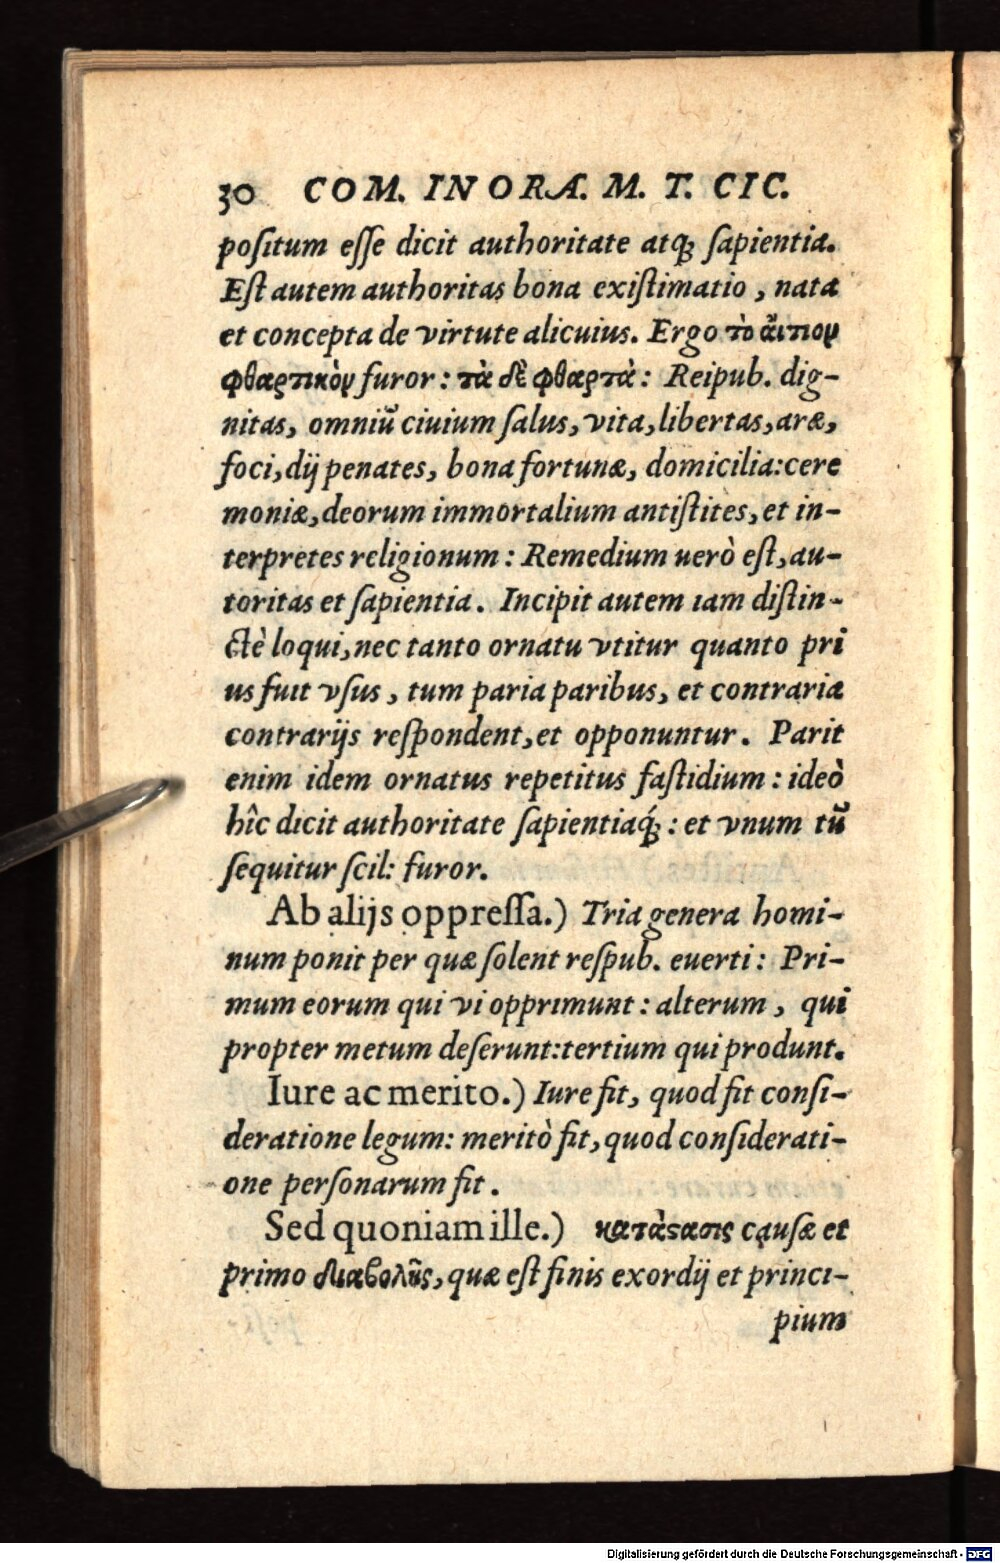 30 COM. IN ORA. M. T. CIC.
poſitum eſſe dicit authoritate atq́; ſapientia.
Eſt autem authoritas bona exiſtimatio, nata
et concepta de virtute alicuius. Ergo τὸ ἄιτιον
φθαρτικὸν furor: τὰ δὲ φθαρτὰ: Reipub. dig-
nitas, omniũ ciuium ſalus, vita, libertas, aræ,
foci, dij penates, bona fortunæ, domicilia: cere
moniæ, deorum immortalium antiſtites, et in-
terpretes religionum: Remedium uerò eſt, au-
toritas et ſapientia. Incipit autem iam diſtin-
ctè loqui, nec tanto ornatu vtitur quanto pri
us fuit vſus, tum paria paribus, et contraria
contrarijs reſpondent, et opponuntur. Parit
enim idem ornatus repetitus faſtidium: ideò
hîc dicit authoritate ſapientiaq́;: et vnum tũ
ſequitur ſcil: furor.
Ab alijs oppreſſa.) Tria genera homi-
num ponit per quæ ſolent reſpub. euerti: Pri-
mum eorum qui vi opprimunt: alterum, qui
propter metum deſerunt: tertium qui produnt.
Iure ac merito.) Iure fit, quod fit conſi-
deratione legum: meritò fit, quod conſiderati-
one perſonarum fit.
Sed quoniam ille.) κατάϛασις cauſæ et
primo διαβολῆς, quæ eſt finis exordij et princi-
pium
Digitalisierung gefördert durch die Deutsche Forschungsgemeinschaft - DFG